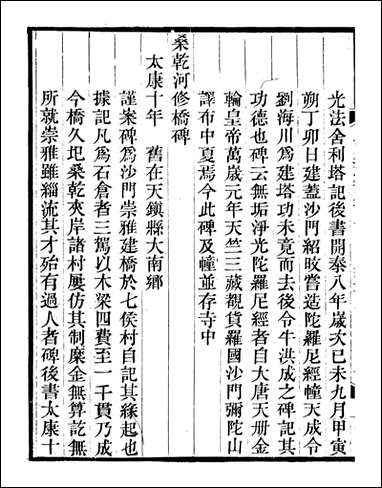 光法舍利塔記後書開泰八年歲次己未九月甲寅
朔丁卯日建蓋沙門紹旼嘗造陀羅尼經幢天成令
劉海川為建塔功未竟而去後令牛洪成之碑記其
功德也碑云無垢淨光陀羅尼經者自大唐天册金
輪皇帝萬歲元年天竺三藏覩貨羅國沙門彌陀山
譯布中夏焉今此碑及幢並存寺中
桑乾河修橋碑
太康十年　舊在天鎮縣大南鄉
謹案碑為沙門崇雅建橋於七侯村自記其緣起也
據記凡為石倉者三駕以木梁四費至一千貫乃成
今橋久圮桑乾夾岸諸村屢仿其制糜金無算訖無
所就崇雅雖緇流其才殆有過人者碑後書太康十